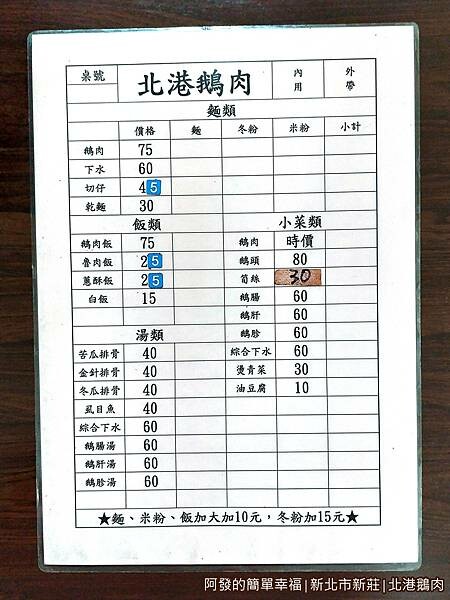 桌號 北港鵝肉 內用 外帶
麵類
價格 麵 冬粉 米粉 小計
鵝肉 75
下水 60
切仔 45
乾麵 30
飯類 小菜類
鵝肉飯 75 鵝肉 時價
魯肉飯 25 鵝頭 80
蔥酥飯 25 筍絲 30
白飯 15 鵝腸 60
鵝肝 60
湯類 鵝胗 60
苦瓜排骨 40 綜合下水 60
金針排骨 40 燙青菜 30
冬瓜排骨 40 油豆腐 10
虱目魚 40
綜合下水 60
鵝腸湯 60
鵝肝湯 60
鵝胗湯 60
★麵、米粉、飯加大加10元,冬粉加15元★
阿發的簡單幸福|新北市新莊|北港鵝肉